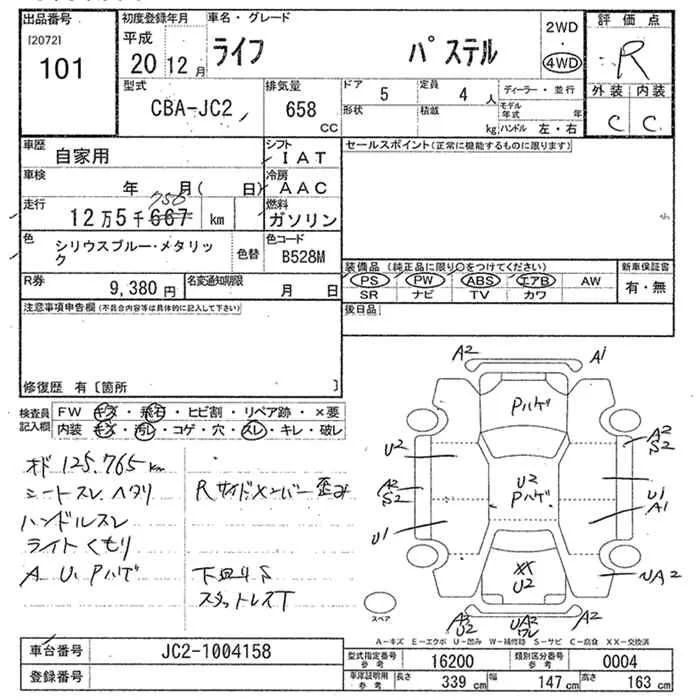 出品番号 初度登録年月 車名・グレード 2WD 評価点
[2072] 平成 ライフ パステル ・ R
101 20年12月 4WD 外装 内装
型式 排気量 ドア 5 定員 4人 ディーラー・並行 C C
CBA-JC2 658 CC 形状 積載 kg モデル年式 年
ハンドル 左・右
車歴 自家用 シフト IAT セールスポイント(正常に機能するものに限ります)
車検 年 月( 日) 冷房 AAC
750
走行 12万5千667 km 燃料 ガソリン
色 シリウスブルー・メタリック 色替 色コード B528M
装備品(純正品に限り○をつけてください) 新車保証書
PS PW ABS エアB AW 有・無
SR ナビ TV カワ
R券 9,380円 名変通知期限 月 日
後日品
注意事項申告欄(不具合内容等は具体的に記入して下さい)
修復歴 有〔箇所 〕
検査員記入欄 FW キズ・飛石・ヒビ割・リペア跡・×要
内装 キズ・汚レ・コゲ・穴・スレ・キレ・破レ
オド 125,765km
シートスレ、ヘタリ
ハンドルスレ
ライトくもり
A U Pハゲ
Rサイドメンバー歪み
下回りS
スタットレスT
A2 A1
Pハゲ
U2 A2 S2
A2 S2 U2 Pハゲ U1 A1
U1
XX U2 UA2
スペア A2 U2 UA2 ワレ A2
A-キズ E-エクボ U-凹み W-補修跡 S-サビ C-腐食 XX-交換済
車台番号 JC2-1004158 型式指定番号 参考 16200 類別区分番号 参考 0004
登録番号 車庫証明用 参考 長さ 339cm 幅 147cm 高さ 163cm